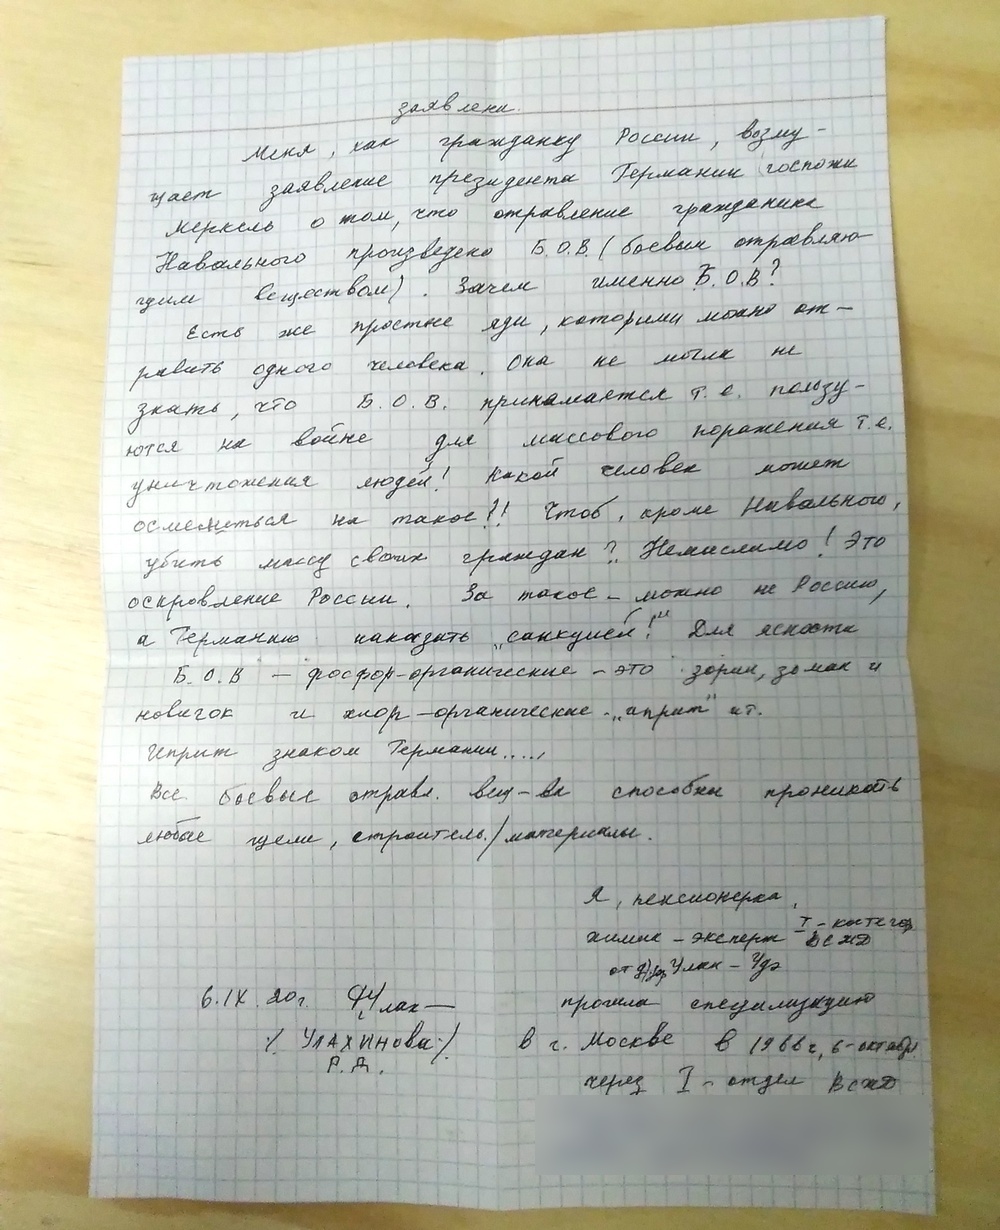 заявлени.
Меня, как гражданку России, возму-
щает заявление президента Германии госпожи
Меркель о том, что отравление гражданина
Навального произведено Б.О.В. (боевым отравляю-
щим веществом). Зачем именно Б.О.В?
Есть же простые яды, которыми можно от-
равить одного человека. Она не могла не
знать, что Б.О.В. принимается т.е. пользу-
ются на войне для массового поражения т.е.
уничтожения людей! Какой человек может
осмелиться на такое?! Чтоб, кроме Навального,
убить массу своих граждан? Немыслимо! Это
оскровление России. За такое - можно не Россию,
а Германию наказать „санкцией!" Для ясности
Б.О.В - фосфор-органические - это зорин, зоман и
новичок и хлор-органические - „иприт" ит.
Иприт знаком Германии....,
Все боевые отравл. вещ-ва способны проникать
любые щели, строитель./материалы.
Я, пенсионерка,
химик - эксперт I - категор
ВСЖД
от Улан - Удэ
6.IX.20г. прошла специлизацию
/. Улахинова ./ в г. Москве в 1966г, 6-октябр.
Р.Д. через I - отдел ВСЖД